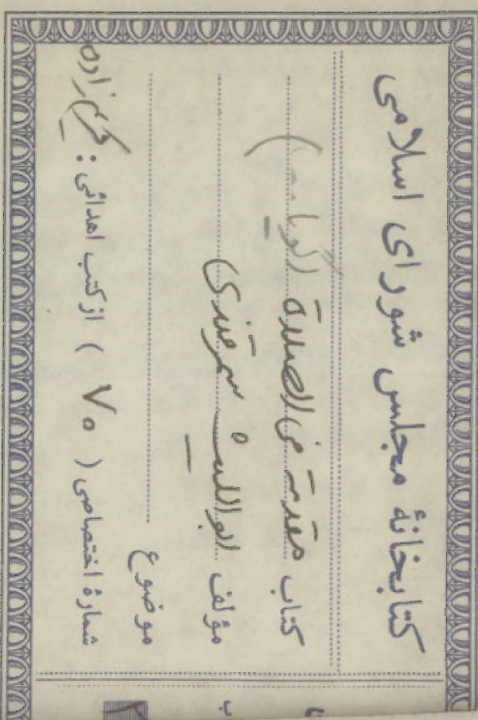 کتابخانهٔ مجلس شورای اسلامی
کتاب مقدمة فی الصلاة (گویا ...)
مؤلف ابواللیث سمرقندی
موضوع
شمارهٔ اختصاصی ( ۷۵ ) از کتب اهدائی :